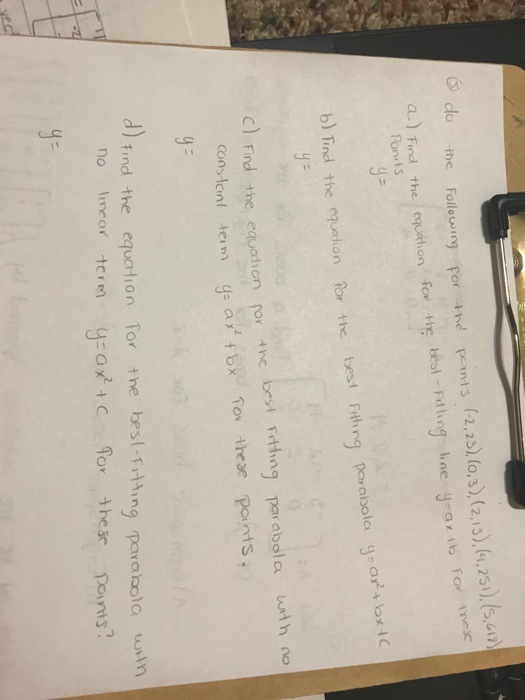 ⑤ do the Following for the points (-2,23), (0,3), (2,15), (4,251), (5,618)
a.) Find the equation for the best-Fitting line y=ax+b For these
Points
y=
b) Find the equation For the best Fitting parabola y=ax²+bx+c
y=
c) Find the equation for the best Fitting parabola with no
constant term y=ax²+bx For these points.
y=
d) Find the equation For the best-Fitting parabola with
no linear term y=ax²+c for these points?
y=